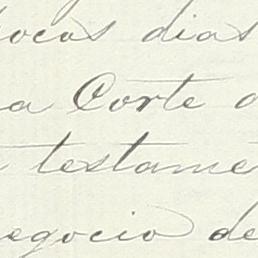 ocos dias
a Corte
testame
egocio de